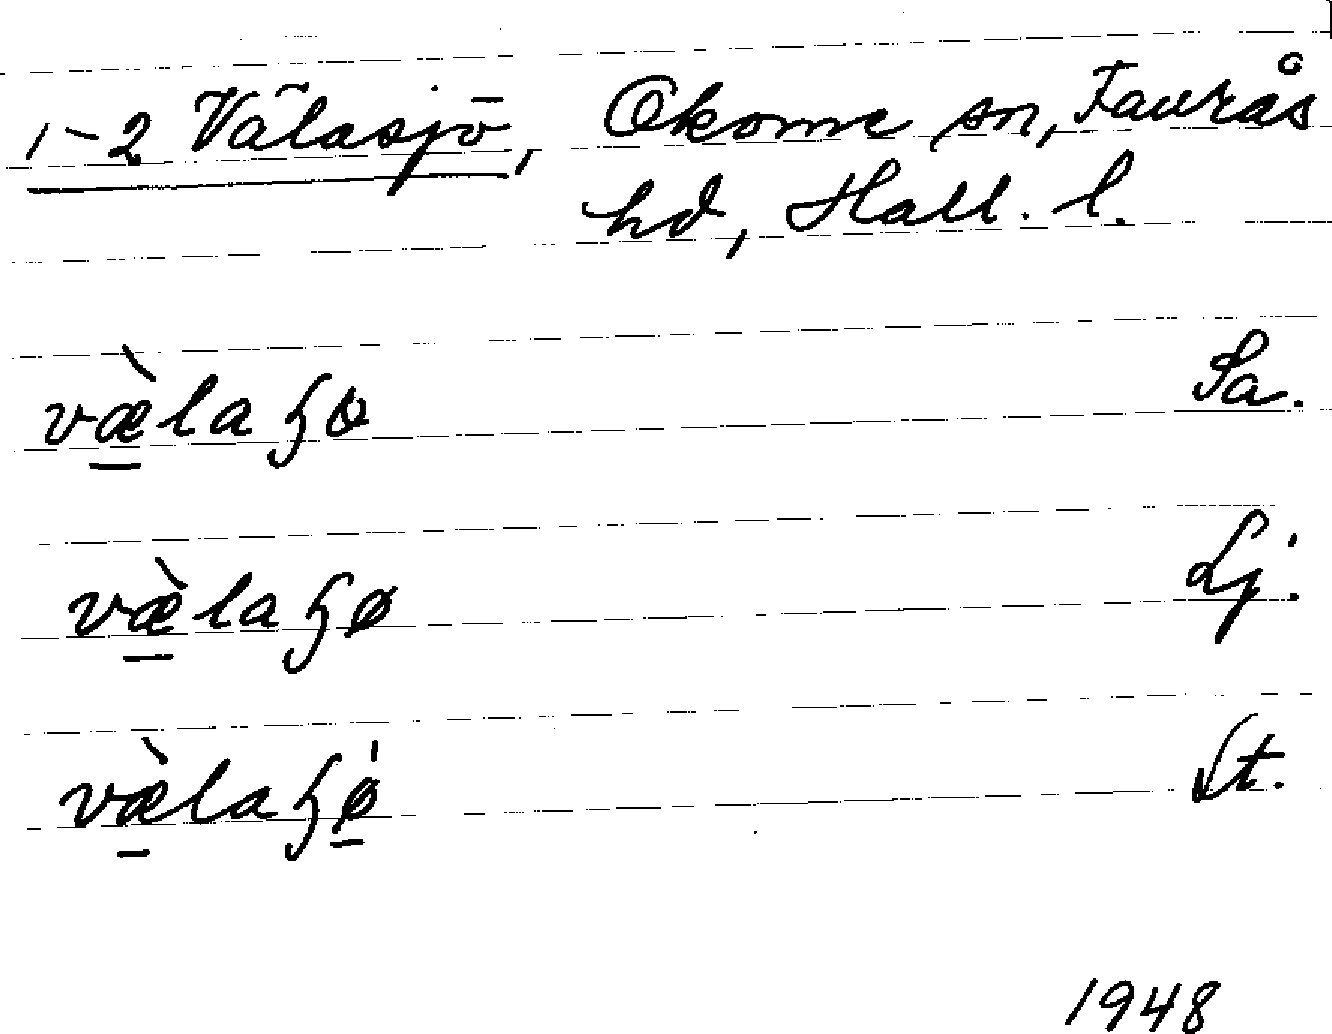 1-2 Välasjö, Okome sn, Faurås
hd, Hall. l.
væ̀laɧo Sa.
væ̀laɧø Lj.
væ̀laɧǿ St.
1948